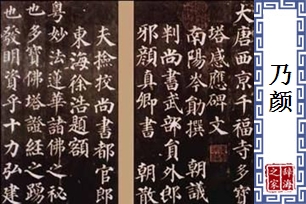 乃颜
辞海
之家
大唐西京千福寺多寶
塔感應碑文
南陽岑勛撰 朝議
判尚書武部員外郎
邪顏真卿書 朝散
夫撿挍尚書都官郎
東海徐浩題額
粵妙法蓮華諸佛之秘
也多寶佛塔證經之踴
也發明資乎十力弘建